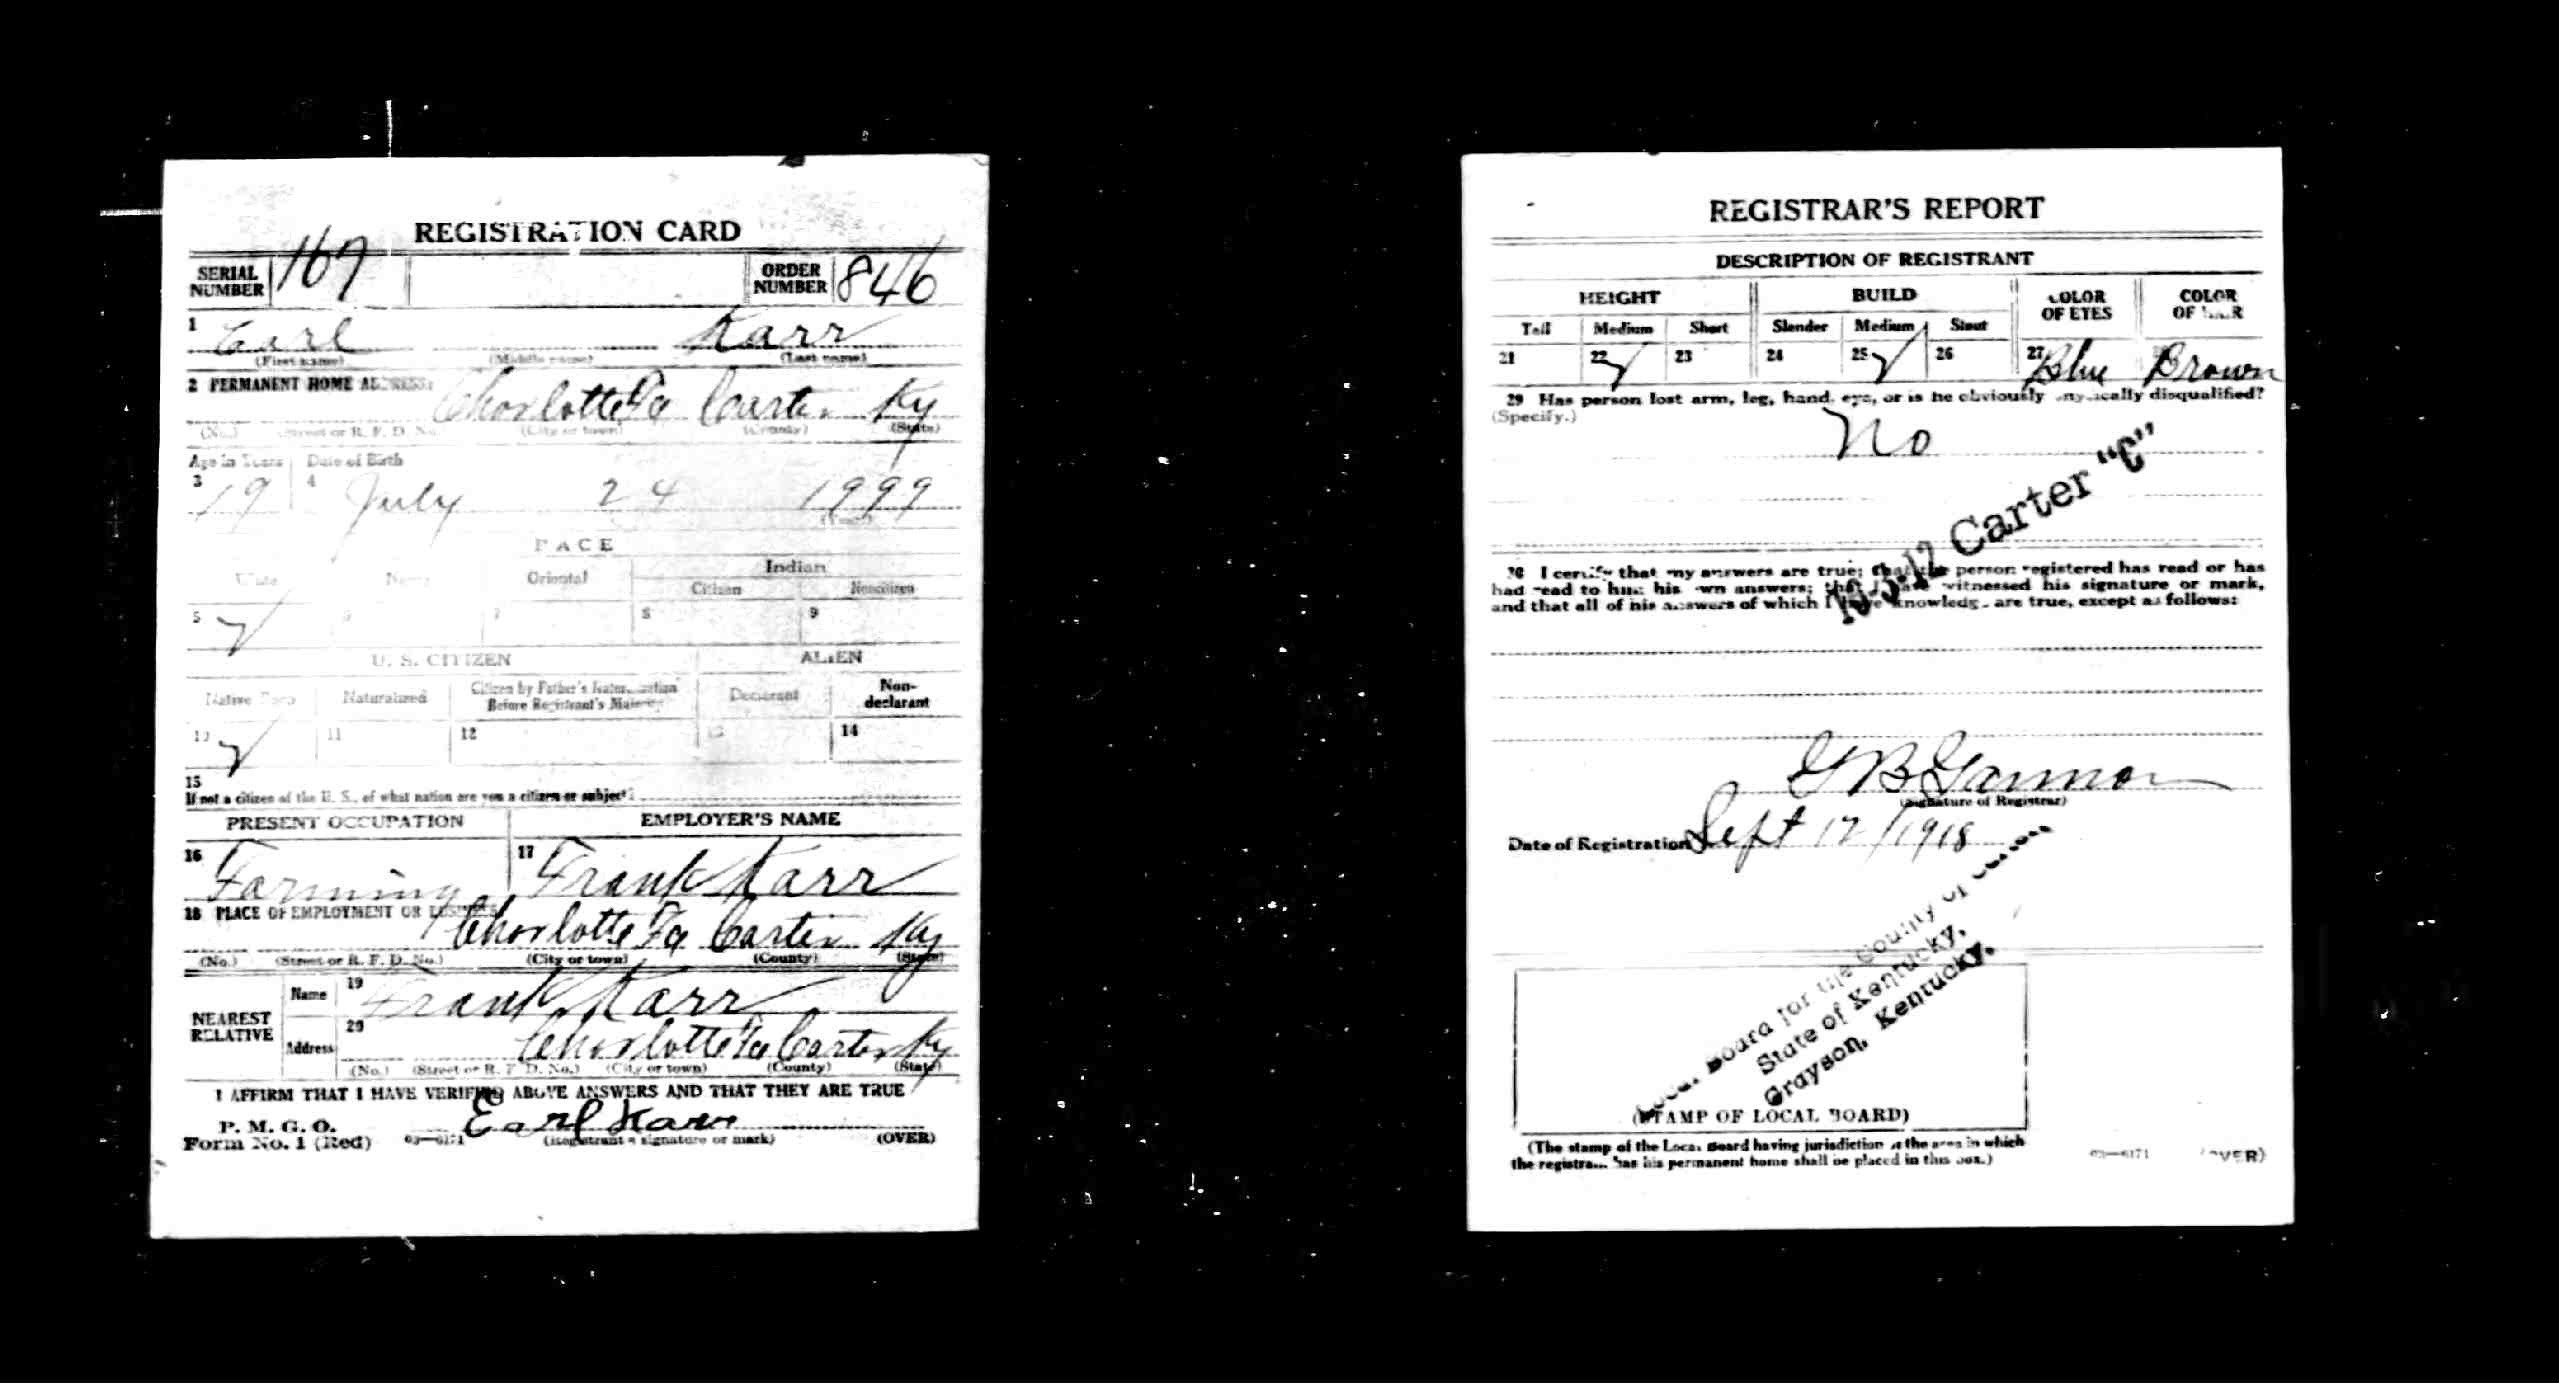 REGISTRATION CARD
SERIAL NUMBER 167 ORDER NUMBER 846
1 Earl Karr
(First name) (Middle name) (Last name)
2 PERMANENT HOME ADDRESS:
Chorlotte Fa Carter Ky
(No.) (Street or R. F. D. No.) (City or town) (County) (State)
Age in Years Date of Birth
3 19 4 July 24 1999
(Year)
RACE
White Negro Oriental Indian
Citizen Noncitizen
5 ✓ 6 7 8 9
U. S. CITIZEN ALIEN
Native Born Naturalized Citizen by Father's Naturalization Before Registrant's Majority Declarant Non-declarant
10 ✓ 11 12 13 14
15
If not a citizen of the U. S., of what nation are you a citizen or subject?
PRESENT OCCUPATION EMPLOYER'S NAME
16 Farming 17 Frank Karr
18 PLACE OF EMPLOYMENT OR BUSINESS
Chorlotte Fa Carter Ky
(No.) (Street or R. F. D. No.) (City or town) (County) (State)
NEAREST RELATIVE
Name 19 Frank Karr
Address 20 Chorlotte Fa Carter Ky
(No.) (Street or R. F. D. No.) (City or town) (County) (State)
I AFFIRM THAT I HAVE VERIFIED ABOVE ANSWERS AND THAT THEY ARE TRUE
P. M. G. O.
Form No. 1 (Red) 03—6171 Earl Karr (OVER)
(Registrant's signature or mark)
REGISTRAR'S REPORT
DESCRIPTION OF REGISTRANT
HEIGHT BUILD COLOR OF EYES COLOR OF HAIR
Tall Medium Short Slender Medium Stout
21 22 ✓ 23 24 25 ✓ 26 27 Blue Brown
29 Has person lost arm, leg, hand, eye, or is he obviously physically disqualified?
(Specify.) No
16-3-12 Carter "C"
30 I certify that my answers are true; that the person registered has read or has
had read to him his own answers; that I have witnessed his signature or mark,
and that all of his answers of which I have knowledge are true, except as follows:
(Signature of Registrar)
Date of Registration Sept 12/1918
Local Board for the County of Carter
State of Kentucky,
Grayson, Kentucky.
(STAMP OF LOCAL BOARD)
(The stamp of the Local Board having jurisdiction of the area in which
the registrant has his permanent home shall be placed in this box.)
03—6171 (OVER)